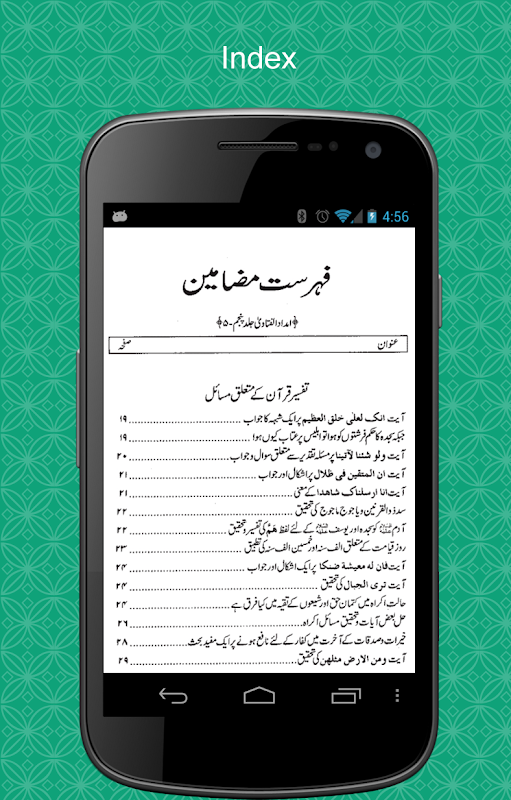 Index
4:56
فہرست مضامین
﴿امداد الفتاویٰ جلد پنجم -۵﴾
عنوان صفحہ
تفسیر قرآن کے متعلق مسائل
آیت انک لعلی خلق العظیم پر ایک شبہ کا جواب ۱۹
جبکہ سجدہ کا حکم فرشتوں کو ہوا تو ابلیس پر عتاب کیوں ہوا ۱۹
آیت ولو شئنا لآتینا پر مسئلہ تقدیر سے متعلق سوال و جواب ۲۰
آیت ان المتقین فی ظلال پر اشکال اور جواب ۲۱
آیت انا ارسلناک شاھدا کے معنی ۲۱
سد ذوالقرنین و یاجوج ماجوج کی تحقیق ۲۲
آدم علیہ السلام کو سجدہ اور یوسف علیہ السلام کے لئے لفظ ھَمَّ کی تفسیر و تحقیق ۲۲
روز قیامت کے متعلق الف سنہ اور خمسین الف سنہ کی تطبیق ۲۳
آیت فان لہ معیشة ضنکا پر ایک اشکال اور جواب ۲۴
آیت تری الجبال کی تحقیق ۲۴
حالت اکراہ میں کتمان حق اور شیعوں کے تقیہ میں کیا فرق ہے ۲۴
حل بعض آیات و تحقیق مسائل اکراہ ۲۶
خیرات و صدقات کے آخرت میں کفار کے لئے نافع ہونے پر ایک مفید بحث ۲۸
آیت ومن الارض مثلھن کی تحقیق ۲۹